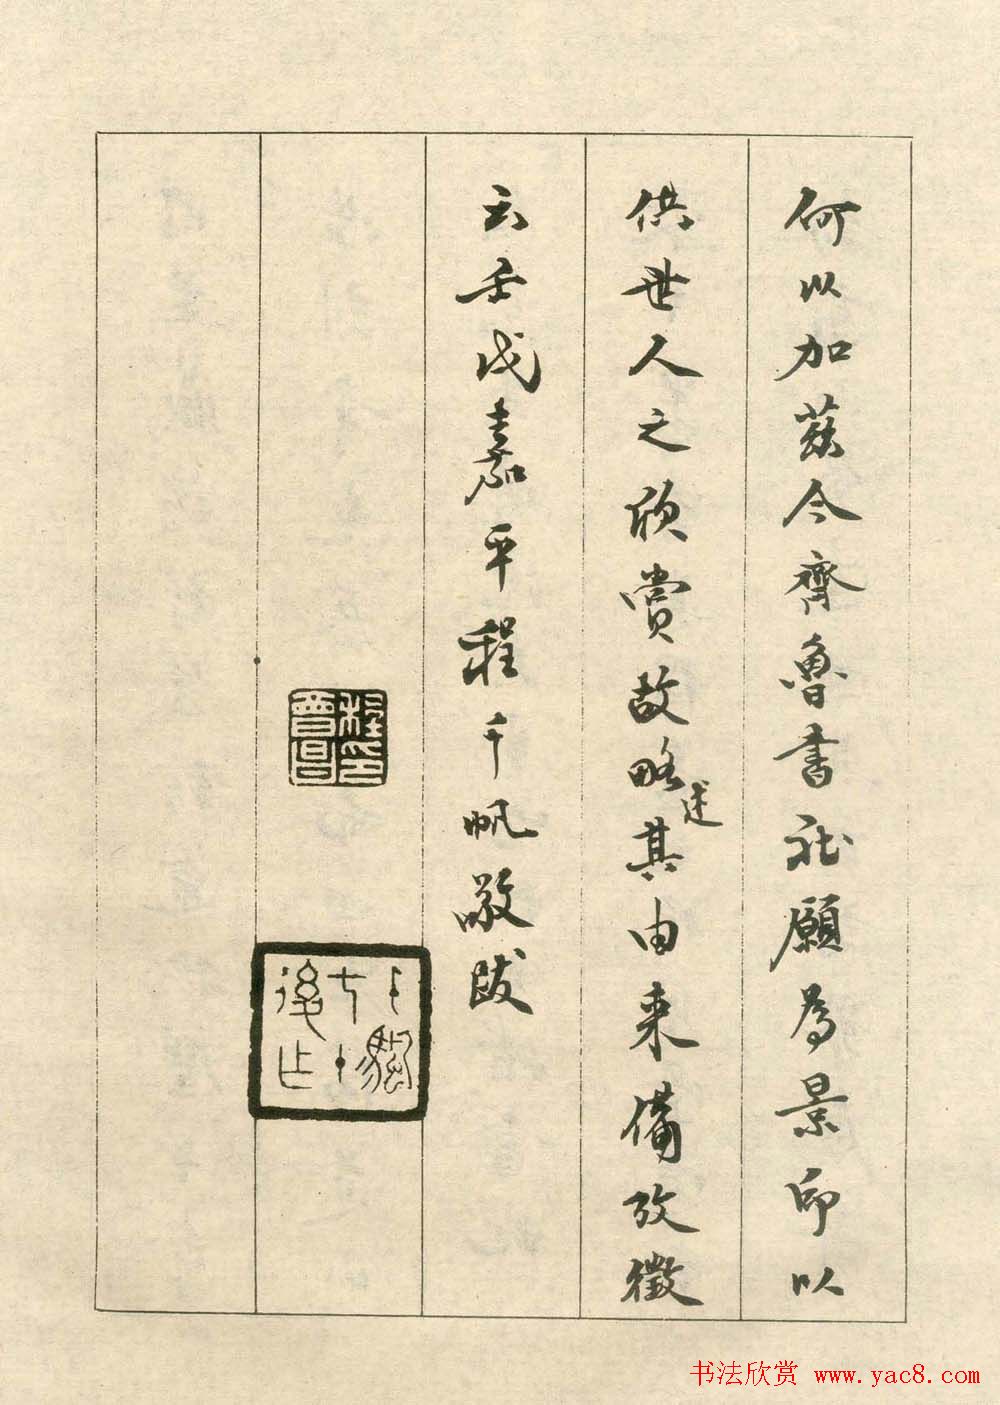 何以加茲今齊魯書社願為景印以
供世人之欣賞故略述其由来備攷徵
云壬戌嘉平程千帆敬跋
程印會昌
七十後作
书法欣赏 www.yac8.com